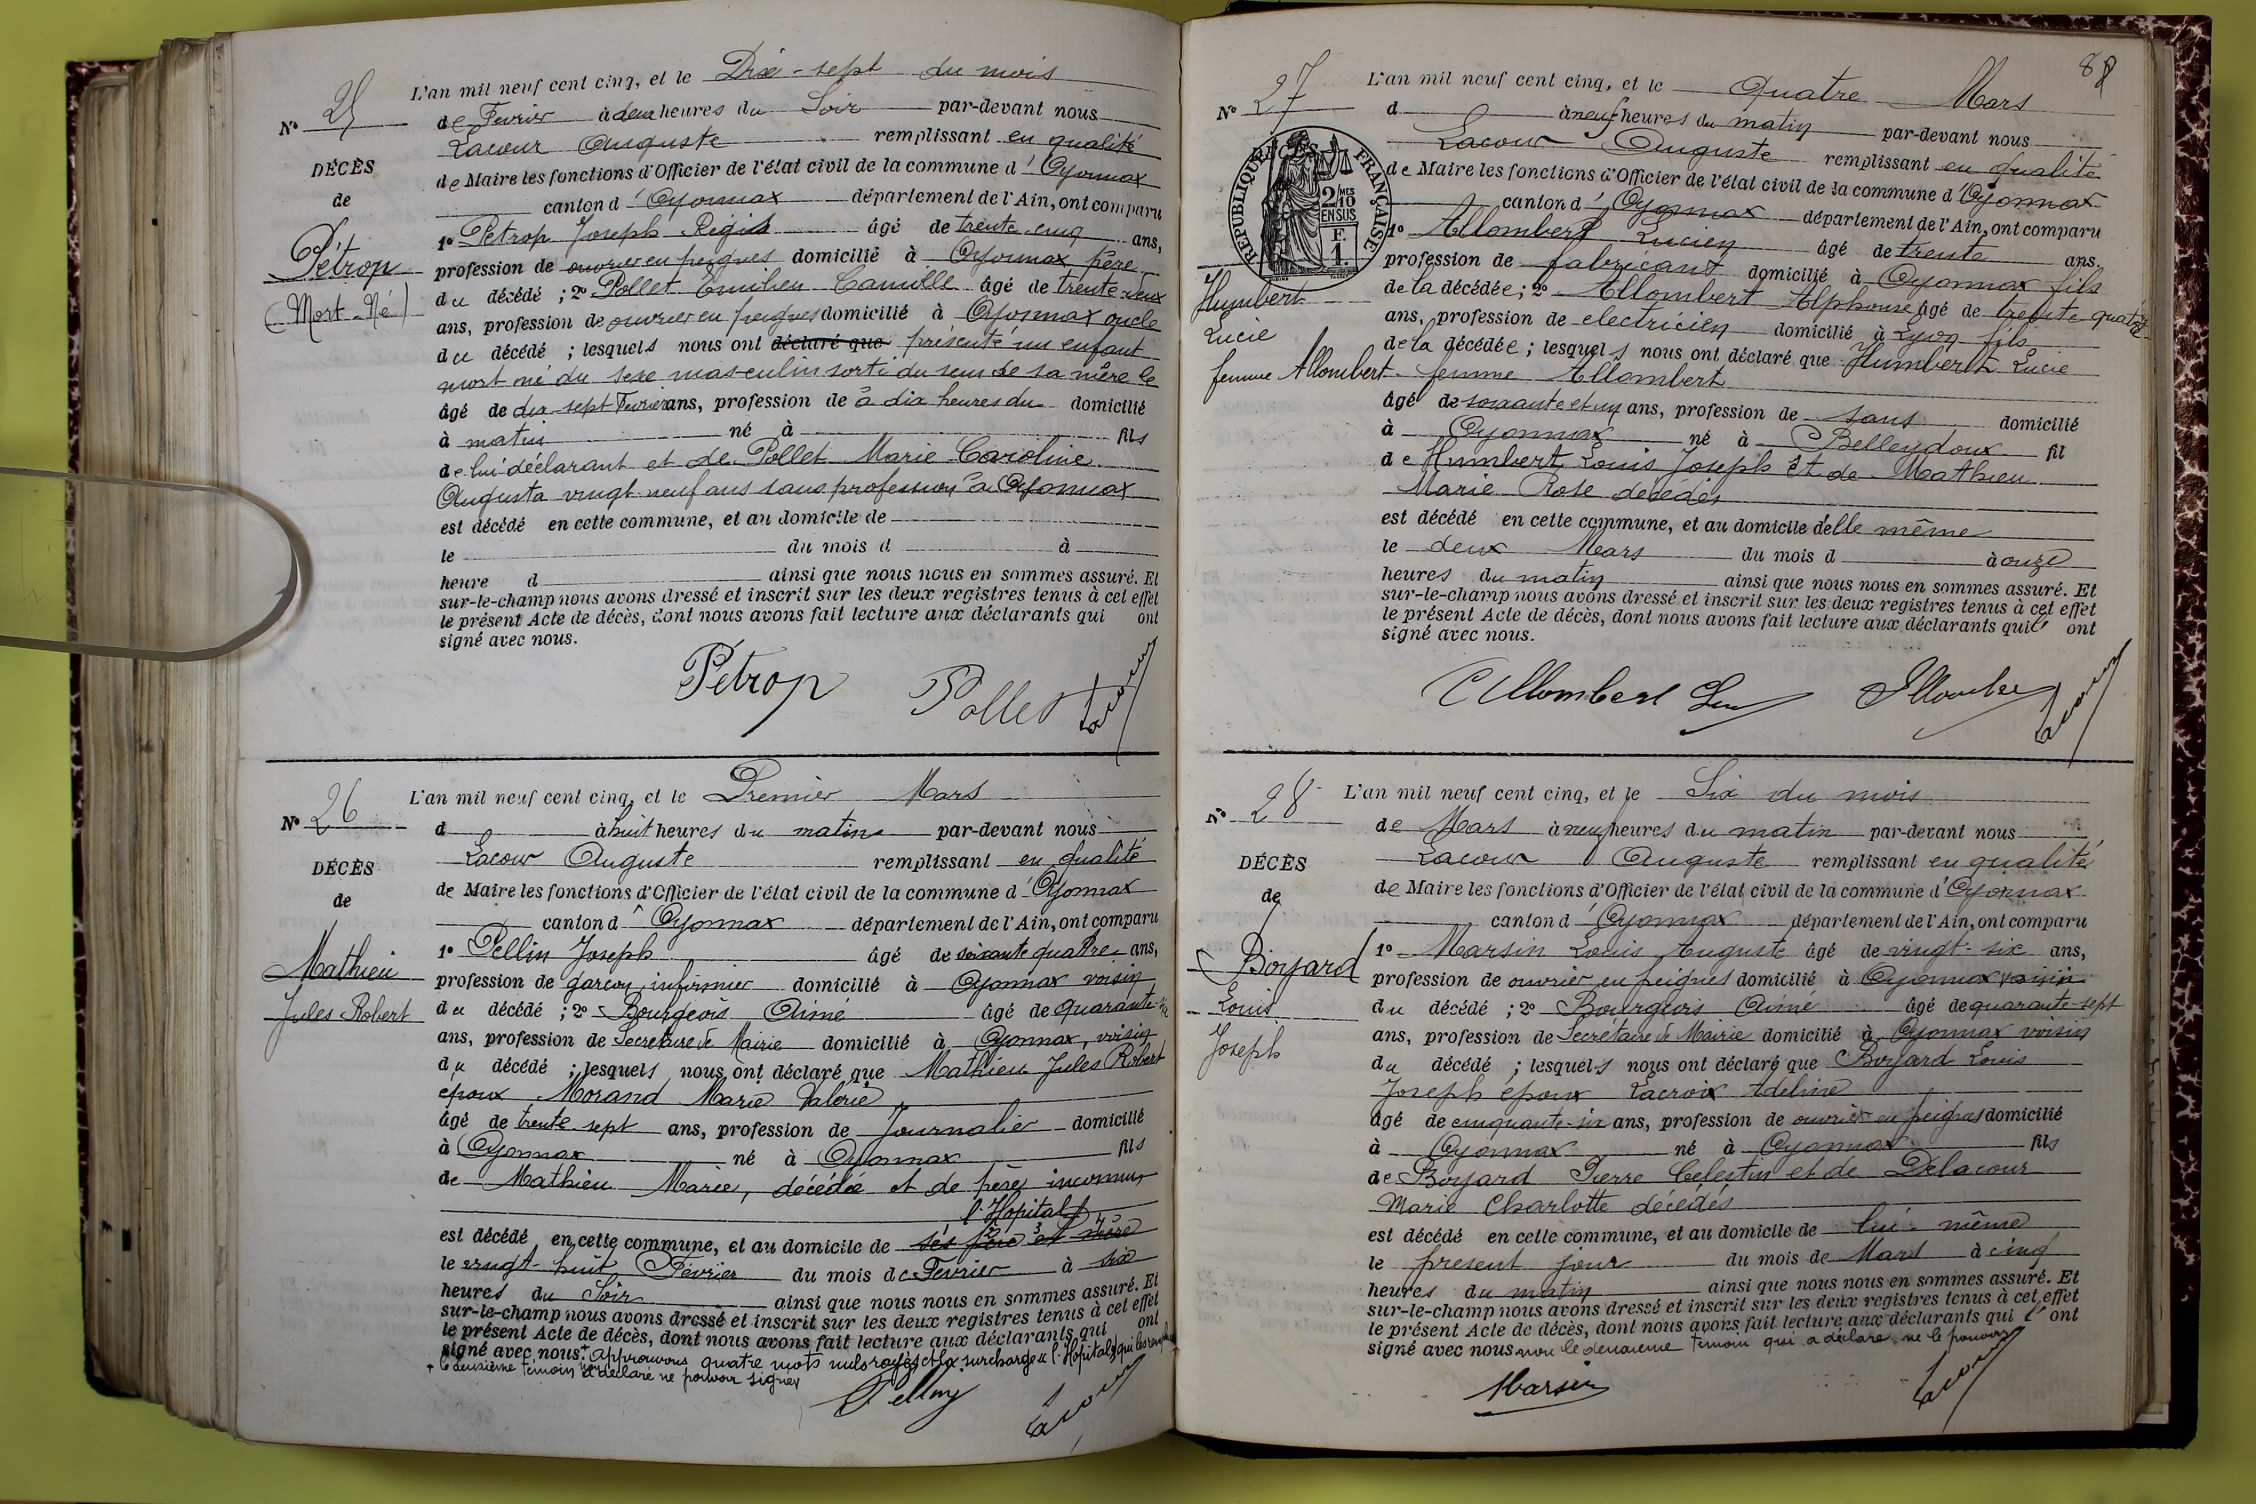 L'an mil neuf cent cinq, et le Dix-sept du mois
N° 25 de Fevrier à deux heures du Soir par-devant nous
Lacour Auguste remplissant en qualité
DÉCÈS
de Maire les fonctions d'Officier de l'état civil de la commune d'Oyonnax
de
canton d'Oyonnax département de l'Ain, ont comparu
1° Pétrop Joseph Régis âgé de trente cinq ans,
Pétrop
profession de ouvrier en peignes domicilié à Oyonnax père
(Mort-Né)
du décédé ; 2° Pollet Emilien Camille âgé de trente deux
ans, profession de ouvrier en peignes domicilié à Oyonnax oncle
du décédé ; lesquels nous ont déclaré que présenté un enfant
mort né du sexe masculin sorti du sein de sa mère le
âgé de dix-sept Fevrier ans, profession de à dix heures du domicilié
à matin né à fils
de lui déclarant et de Pollet Marie Caroline
Augusta vingt neuf ans sans profession à Oyonnax
est décédé en cette commune, et au domicile de
le du mois d à
heure d ainsi que nous nous en sommes assuré. Et
sur-le-champ nous avons dressé et inscrit sur les deux registres tenus à cet effet
le présent Acte de décès, dont nous avons fait lecture aux déclarants qui ont
signé avec nous.
Pétrop Pollet Lacour
L'an mil neuf cent cinq, et le Premier Mars
N° 26 d à huit heures du matin par-devant nous
Lacour Auguste remplissant en qualité
DÉCÈS
de Maire les fonctions d'Officier de l'état civil de la commune d'Oyonnax
de
canton d'Oyonnax département de l'Ain, ont comparu
1° Pellin Joseph âgé de soixante quatre ans,
Mathieu
profession de garçon infirmier domicilié à Oyonnax voisin
Jules Robert
du décédé ; 2° Bourgeois Aimé âgé de quarante
ans, profession de Secrétaire de Mairie domicilié à Oyonnax, voisin
du décédé ; lesquels nous ont déclaré que Mathieu Jules Robert
époux Morand Marie Valérie
âgé de trente sept ans, profession de Journalier domicilié
à Oyonnax né à Oyonnax fils
de Mathieu Marie, décédée et de père inconnu
l'Hopital
est décédé en cette commune, et au domicile de ses père et mère
le vingt-huit Février du mois de Fevrier à six
heures du Soir ainsi que nous nous en sommes assuré. Et
sur-le-champ nous avons dressé et inscrit sur les deux registres tenus à cet effet
le présent Acte de décès, dont nous avons fait lecture aux déclarants qui ont
signé avec nous. + Approuvons quatre mots nuls rayés et la surcharge « l'Hopital » qui les
+ le deuxième témoin a déclaré ne pouvoir signer
Pellin Lacour
88
L'an mil neuf cent cinq, et le Quatre Mars
N° 27 d à neuf heures du matin par-devant nous
Lacour Auguste remplissant en qualité
RÉPUBLIQUE FRANÇAISE
2/10 MES EN SUS
F. 1.
de Maire les fonctions d'Officier de l'état civil de la commune d'Oyonnax
canton d'Oyonnax département de l'Ain, ont comparu
1° Allombert Lucien âgé de trente ans.
profession de fabricant domicilié à Oyonnax fils
Humbert
de la décédée ; 2° Allombert Alphonse âgé de trente quatre
Lucie
ans, profession de electricien domicilié à Lyon fils
femme Allombert
de la décédée ; lesquels nous ont déclaré que Humbert Lucie
femme Allombert
âgé de soixante et un ans, profession de sans domicilié
à Oyonnax né à Belleydoux fil
de Humbert Louis Joseph et de Mathieu
Marie Rose décédés
est décédé en cette commune, et au domicile d'elle même
le deux Mars du mois d à onze
heures du matin ainsi que nous nous en sommes assuré. Et
sur-le-champ nous avons dressé et inscrit sur les deux registres tenus à cet effet
le présent Acte de décès, dont nous avons fait lecture aux déclarants qui ont
signé avec nous.
Allombert Lacour
L'an mil neuf cent cinq, et le Six du mois
N° 28 de Mars à neuf heures du matin par-devant nous
Lacour Auguste remplissant en qualité
DÉCÈS
de Maire les fonctions d'Officier de l'état civil de la commune d'Oyonnax
de
canton d'Oyonnax département de l'Ain, ont comparu
1° Marsin Louis Auguste âgé de vingt-six ans,
Boyard
profession de ouvrier en peignes domicilié à Oyonnax voisin
Louis
du décédé ; 2° Bourgeois Aimé âgé de quarante-sept
ans, profession de Secrétaire de Mairie domicilié à Oyonnax voisin
Joseph
du décédé ; lesquels nous ont déclaré que Boyard Louis
Joseph époux Lacroix Adeline
âgé de cinquante-six ans, profession de ouvrier en peignes domicilié
à Oyonnax né à Oyonnax fils
de Boyard Pierre Celestin et de Delacour
Marie Charlotte décédés
est décédé en cette commune, et au domicile de lui-même
le present jour du mois de Mars à cinq
heures du matin ainsi que nous nous en sommes assuré. Et
sur-le-champ nous avons dressé et inscrit sur les deux registres tenus à cet effet
le présent Acte de décès, dont nous avons fait lecture aux déclarants qui ont
signé avec nous non le deuxieme temoin qui a déclaré ne le pouvoir
Marsin Lacour